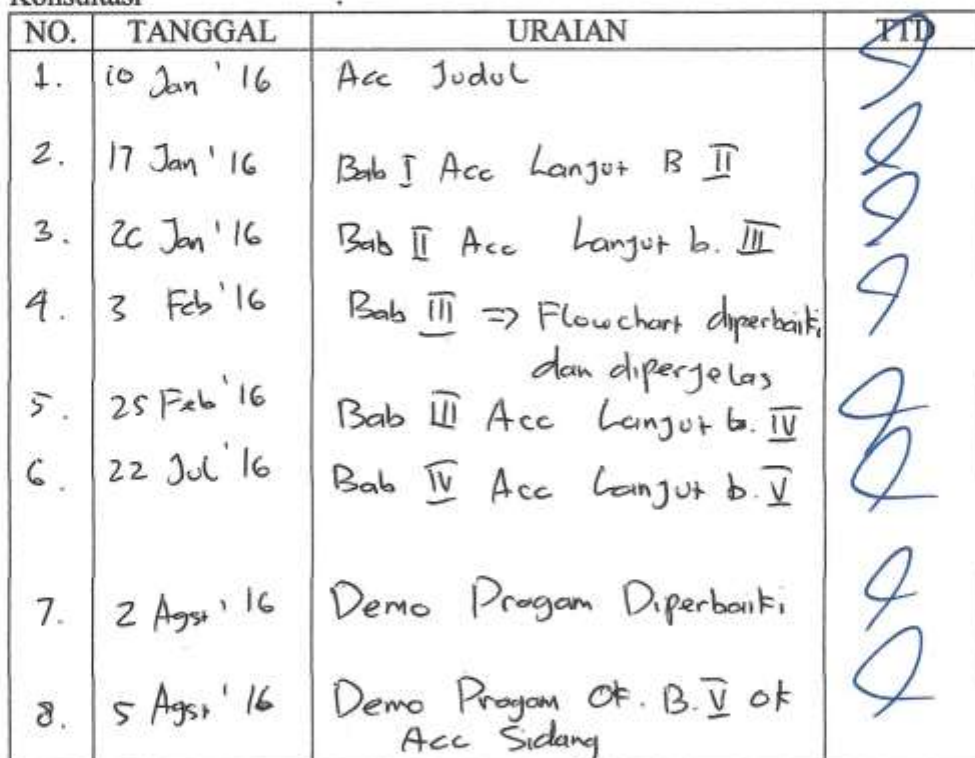 Konsultasi :
NO. TANGGAL URAIAN TTD
1. 10 Jan '16 Acc Judul
2. 17 Jan '16 Bab I Acc Lanjut B II
3. Jan '16 Bab II Acc Lanjut b. III
4. 3 Feb '16 Bab III => Flowchart diperbaiki
dan diperjelas
5. 25 Feb '16 Bab III Acc Lanjut b. IV
6. 22 Jul '16 Bab IV Acc Lanjut b. V
7. 2 Agst '16 Demo Progam Diperbaiki
8. 5 Agst '16 Demo Progam Ok. B. V ok
Acc Sidang